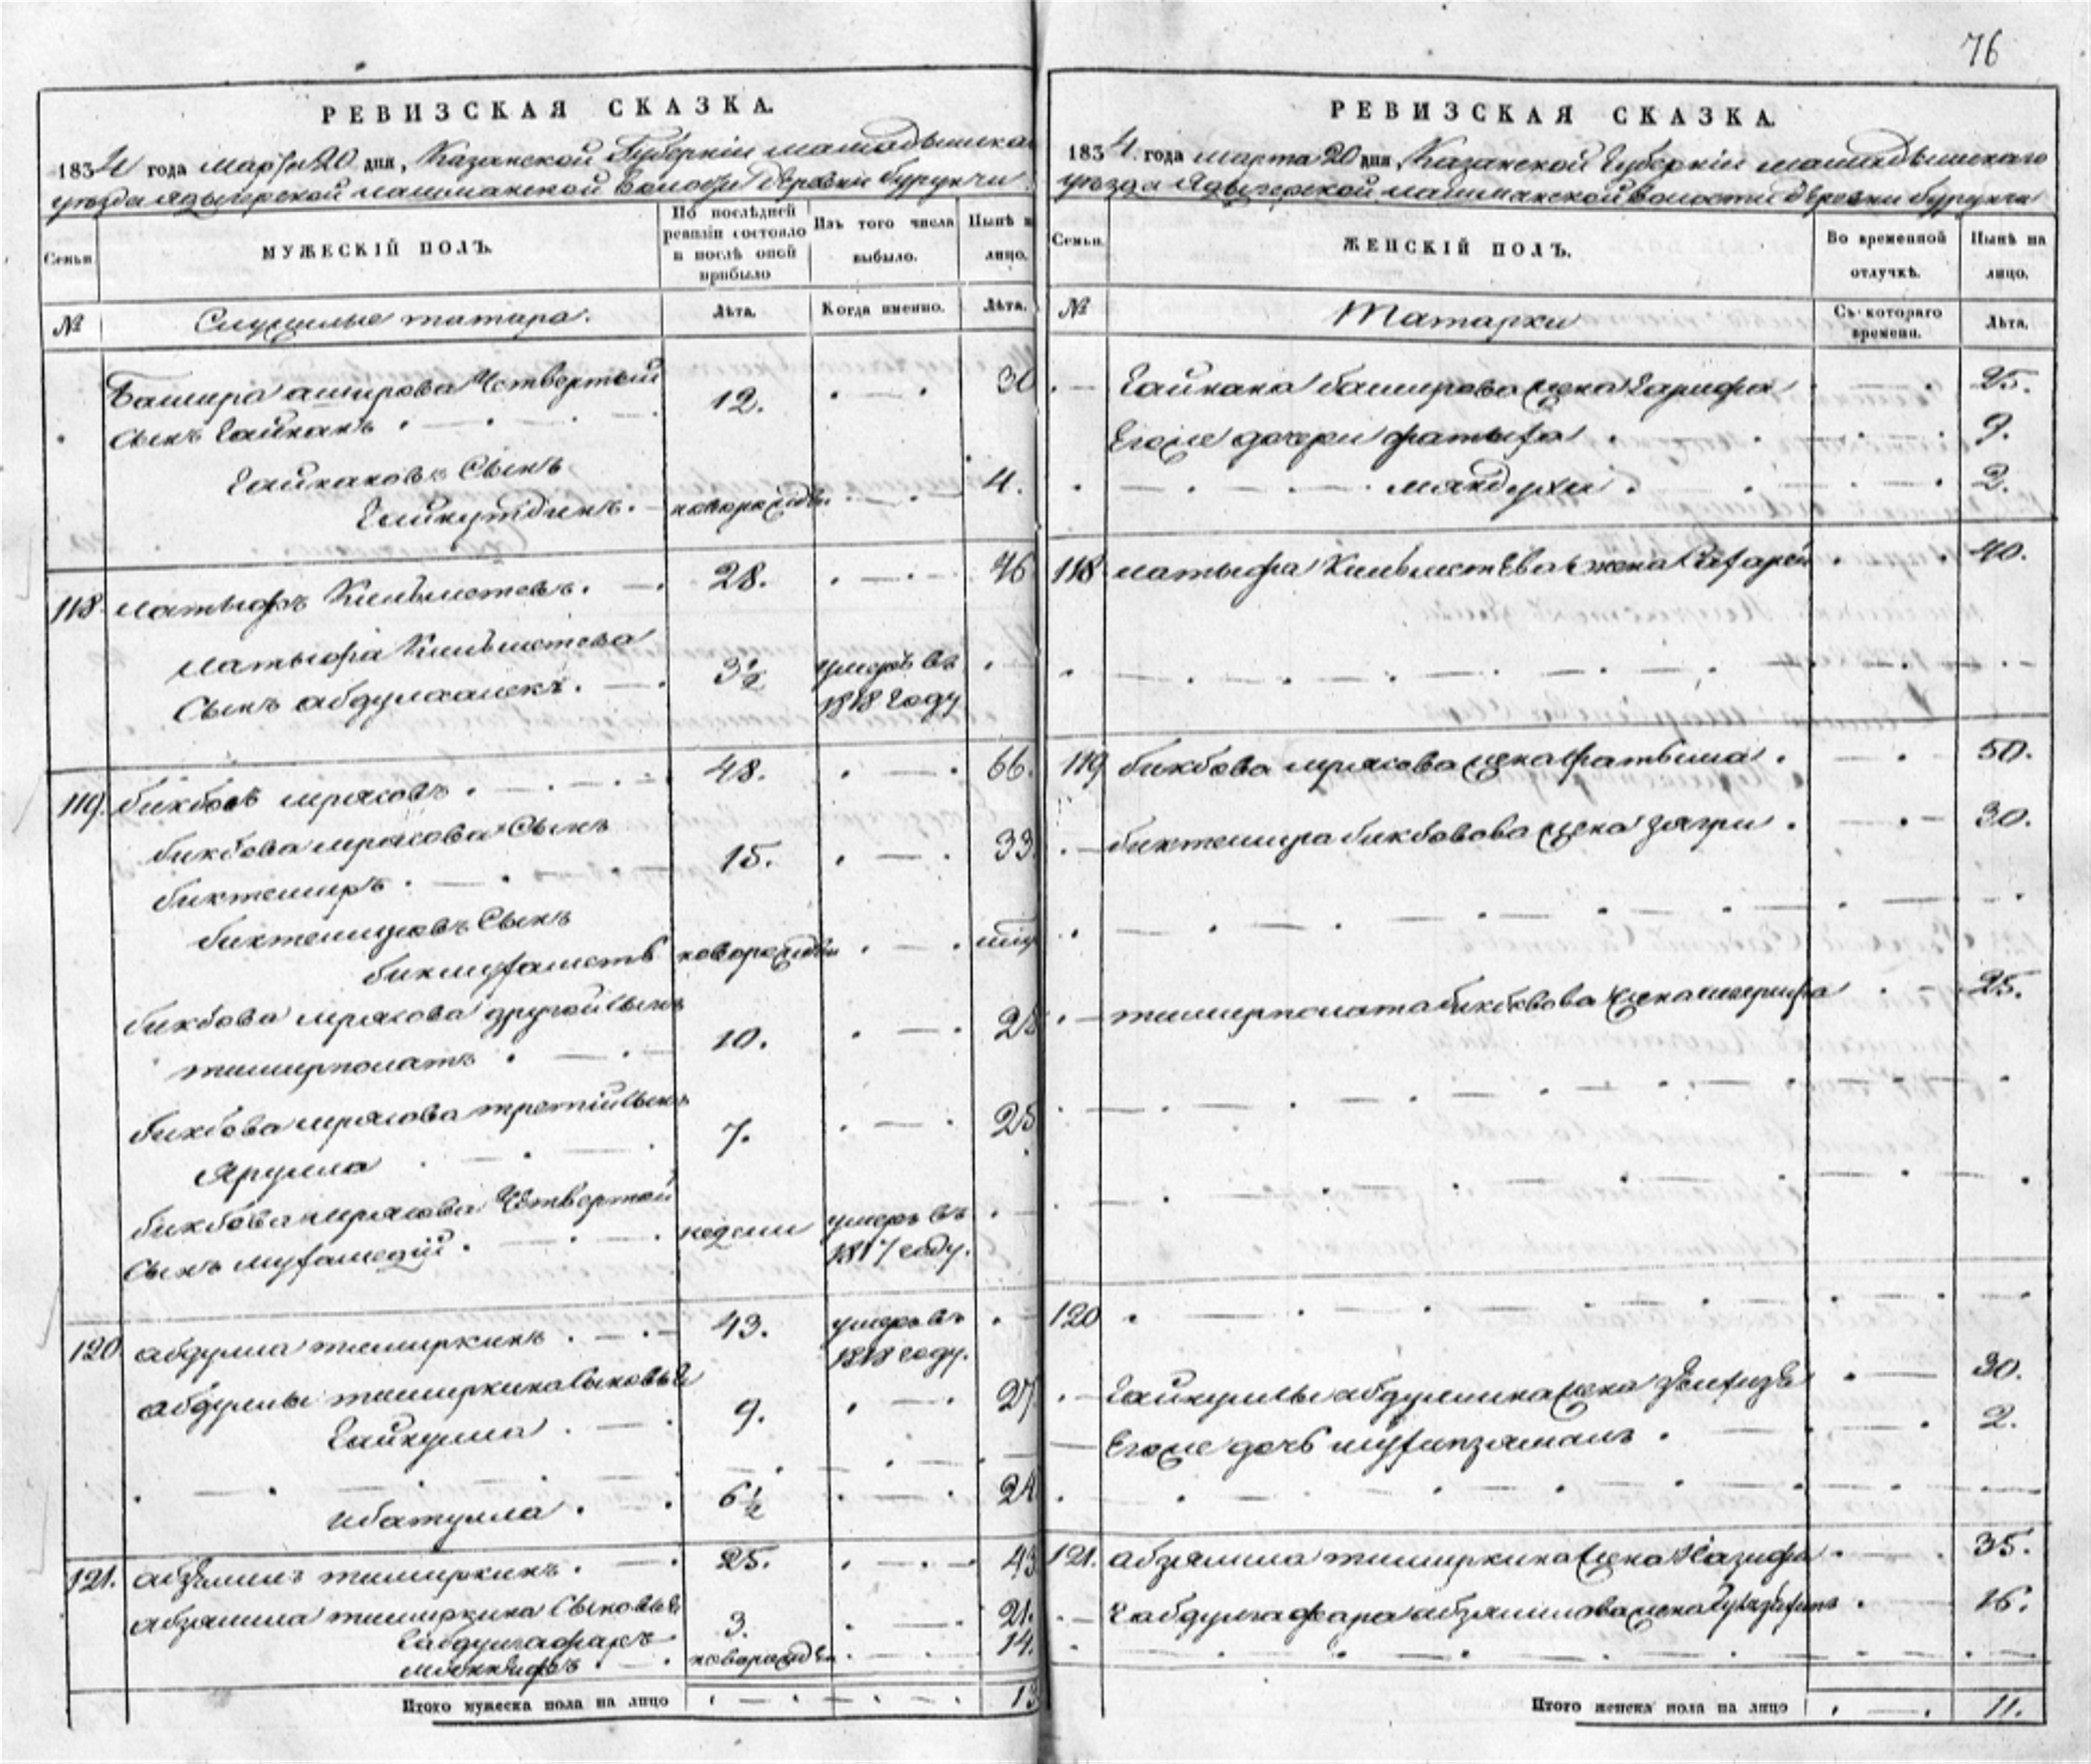 76
РЕВИЗСКАЯ СКАЗКА.
1834 года марта 20 дня, Казанской Губерніи мамадышскаго
уезда ядыгерской лашманской волости деревни бурунчи
Семьи.
МУЖЕСКІЙ ПОЛЪ.
По послѣдней ревизіи состояло и послѣ оной прибыло
Изъ того числа выбыло.
Нынѣ на лицо.
№
Служилые татара.
Лѣта.
Когда именно.
Лѣта.
Башира аширова Четвертый 12. 30
Сынъ Гайнанъ
Гайнановъ Сынъ 4.
Гайнутдинъ. новорожден
118. латыфъ Кильметевъ. 28. 46
латыфа Кильметева 3 1/2 умеръ въ
Сынъ абдулмаликъ. 1818 году
119. бикбовъ мрясовъ. 48. 66.
бикбова мрясова Сынъ 15. 33
биктемиръ
биктемировъ Сынъ
бикмухаметъ новорожден
бикбова мрясова другой Сынъ 10. 28
тимирполатъ
бикбова мрясова третій Сынъ 7. 25
Ярулла
бикбова мрясова Четвертой недели умеръ въ
Сынъ мухамедій. 1817 году.
120 абдулла тимиркинъ 43. умеръ въ
1818 году.
абдуллы тимиркина Сыновья
Гайнулла 9. 27
ибатулла 6 1/2 24
121. абзялилъ тимиркинъ. 25. 43
абзялила тимиркина Сыновья
Габдулгафаръ 3. 21.
новорожден 14.
Итого мужеска пола на лицо 13
РЕВИЗСКАЯ СКАЗКА.
1834 года марта 20 дня, Казанской Губерніи мамадышскаго
уезда ядыгерской лашманской волости деревни бурунчи
Семьи.
ЖЕНСКІЙ ПОЛЪ.
Во временной отлучкѣ.
Нынѣ на лицо.
№
Татарки
Съ котораго времени.
Лѣта.
Гайнана баширова жена Гарифа 25.
Егоже дочери фатыха 9.
2.
118 латыфа Кильметева жена 40.
119 бикбова мрясова жена фатыма. 50.
биктемира бикбовова жена зягри. 30.
тимирполата бикбовова жена шарифа 25.
120
Гайнуллы абдуллина жена 30.
Егоже дочь мухипзямалъ. 2.
121. абзялила тимиркина жена Назифа 35.
Габдулгафара абзялилова жена 16.
Итого женска пола на лицо 11.